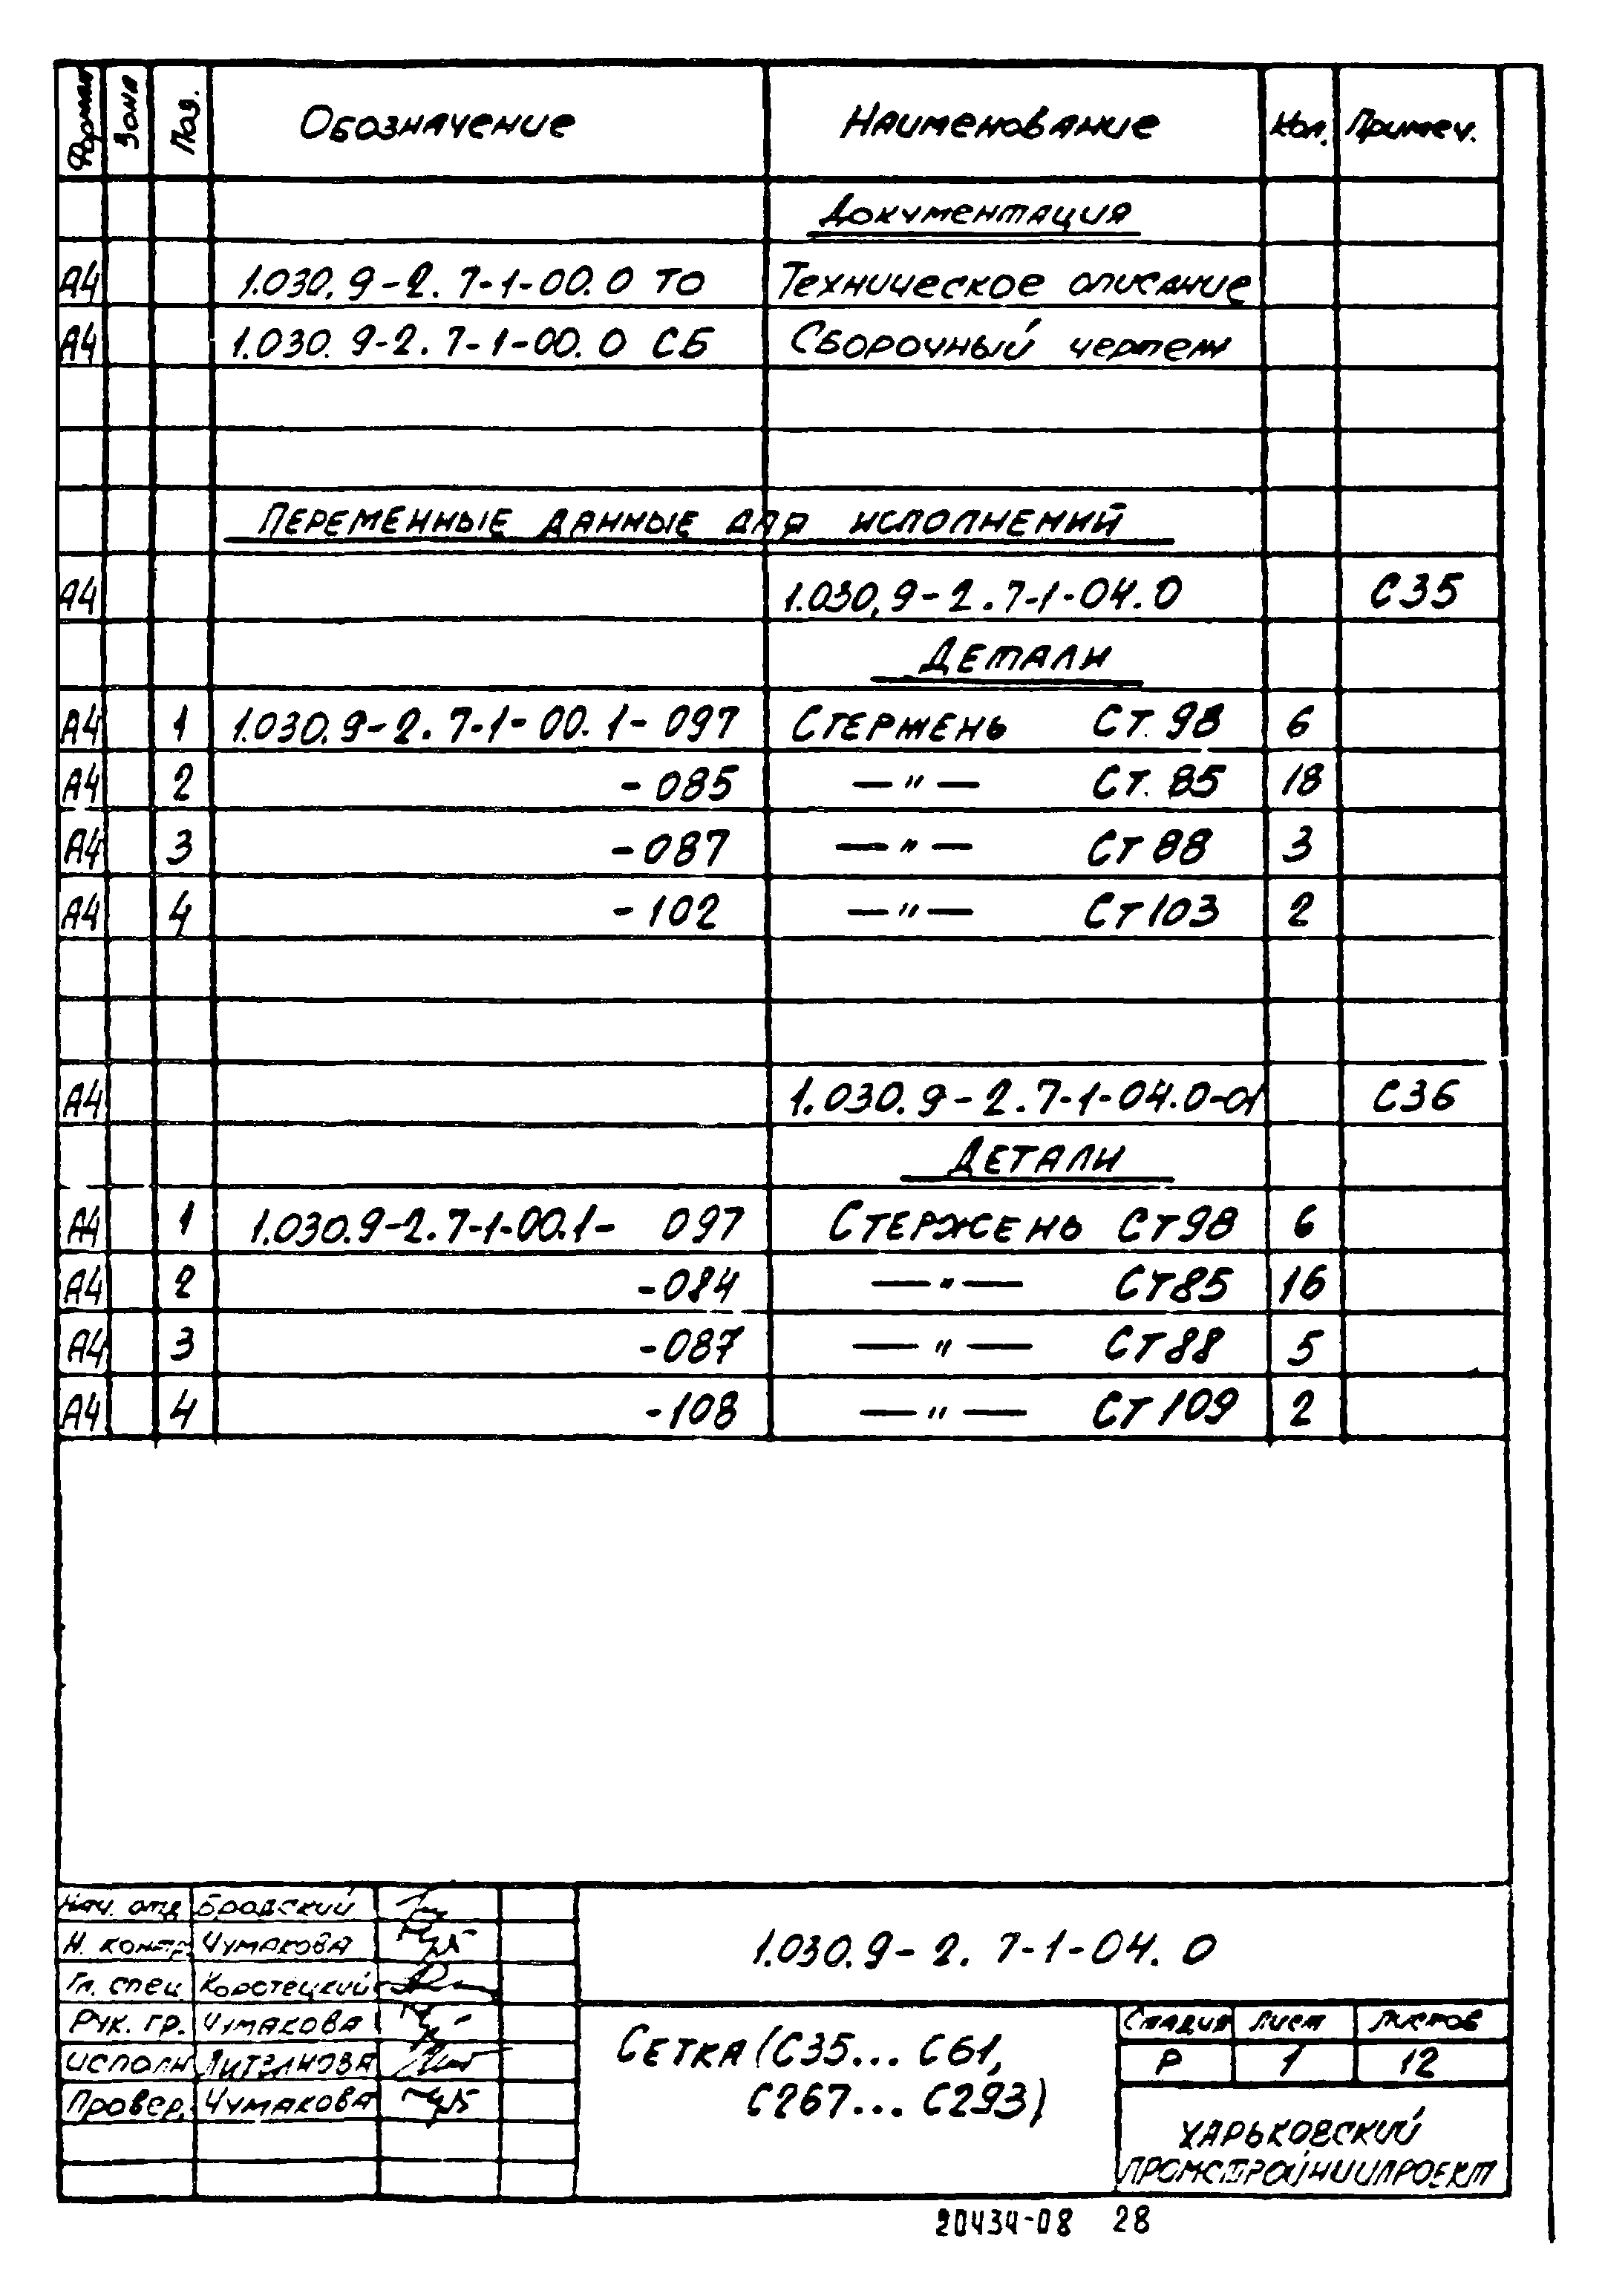 Формат Зона Поз. Обозначение Наименование Кол. Примеч.
Документация
А4 1.030.9-2.7-1-00.0 ТО Техническое описание
А4 1.030.9-2.7-1-00.0 СБ Сборочный чертеж
Переменные данные для исполнений
А4 1.030.9-2.7-1-04.0 С35
Детали
А4 1 1.030.9-2.7-1-00.1-097 Стержень Ст.98 6
А4 2 -085 —"— Ст.85 18
А4 3 -087 —"— Ст88 3
А4 4 -102 —"— Ст103 2
А4 1.030.9-2.7-1-04.0-01 С36
Детали
А4 1 1.030.9-2.7-1-00.1- 097 Стержень Ст98 6
А4 2 -084 —"— Ст85 16
А4 3 -087 —"— Ст88 5
А4 4 -108 —"— Ст109 2
Нач. отд Бродский
Н. контр Чумакова
Гл. спец Коротецкий
Рук. гр. Чумакова
Исполн
Провер. Чумакова
1.030.9-2.7-1-04.0
Сетка (С35... С61,
С267... С293)
Стадия Лист Листов
Р 1 12
Харьковский
Промстройниипроект
20434-08 28